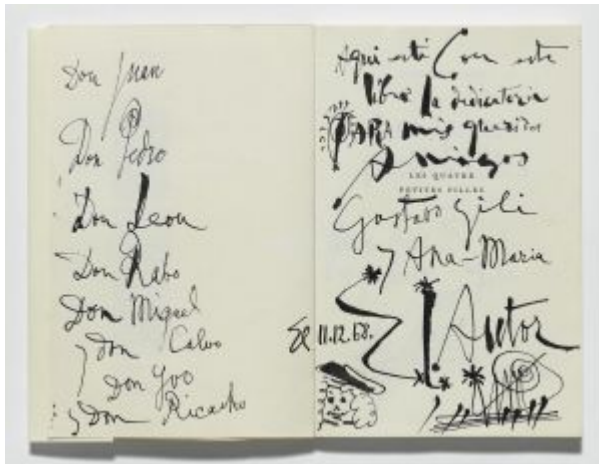 Don Juan
Don Pedro
Don Leon
Don Rabo
Don Miguel
y Don Calvo
Don Yoo
y Don Ricacho
Aqui está Con este
libro la dedicatoria
PARA mis queridos
Amigos
LES QUATRE
PETITES FILLES
Gustavo Gili
y Ana-Maria
El 11.12.68.
Autor